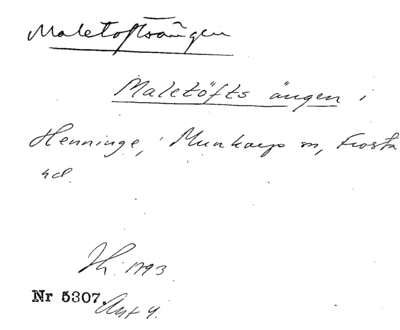 Maletoftsängen
Maletöfts ängen i
Henninge, Munkarp sn, Frosta
hd.
Th. 1793
Nr 5307. Akt 4.